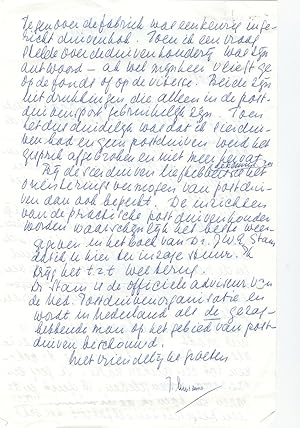 Tegenover de fabriek was een kennis inge-
richt duivenhok. Toen ik een vraag
stelde over de duivenhouderij was zijn
antwoord – ah wel mijnheer
op de fond of op de vitesse. Beide zijn
uitdrukkingen die alleen in de post-
duivensport gebruikelijk zijn. Toen
het dus duidelijk was dat ik sierdui-
ven had en geen postduiven werd het
gesprek afgebroken en niet meer hervat.
Bij de sierduiven liefhebbers is het
orienteringsvermogen van postdui-
ven dan ook beperkt. De inzichten
van de practische postduivenhouder
worden waarschijnlijk het beste weer-
gegeven in het boek van Dr. J.W.E. Stam
dat ik u hier ter inzage stuur. Ik
krijg het t.z.t. wel terug.
Dr Stam is de officiele adviseur van
de Ned. Postduivenorganisatie en
wordt in Nederland als de
man op het gebied van post-
duiven beschouwd.
met vriendelijke groeten